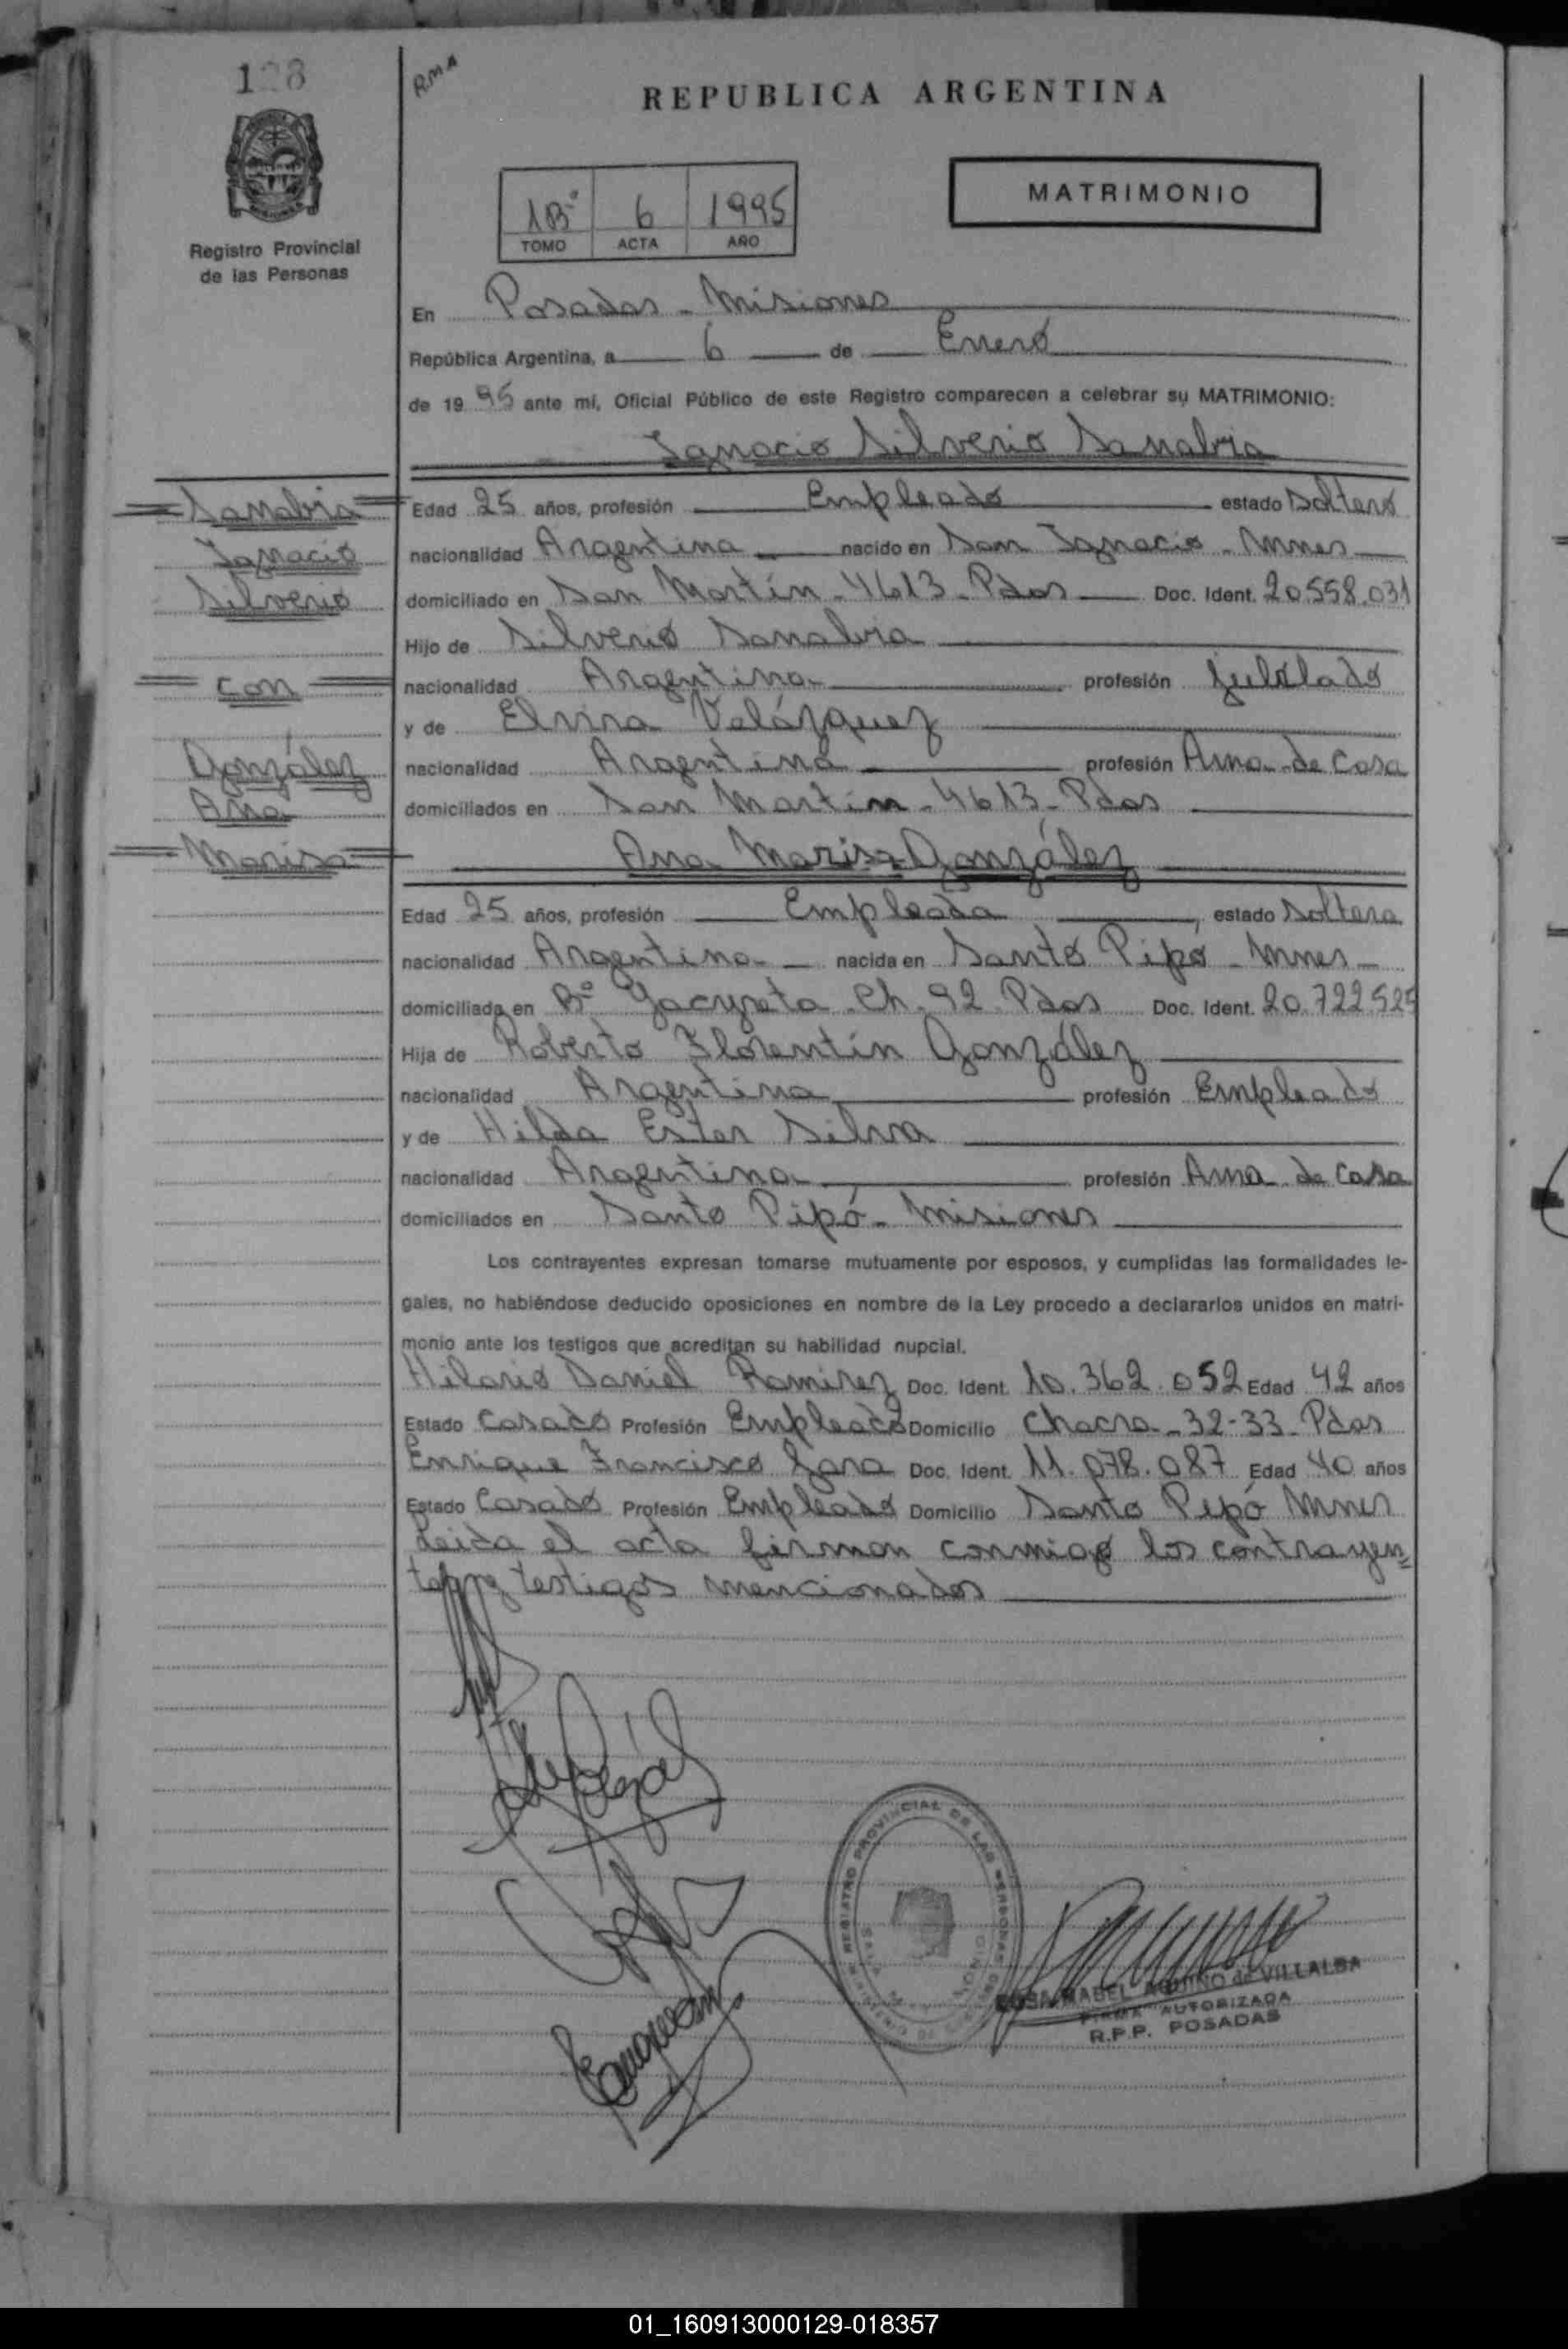 128
RMA
REPUBLICA ARGENTINA
1Bº 6 1995
TOMO ACTA AÑO
MATRIMONIO
Registro Provincial
de las Personas
En Posadas - Misiones
República Argentina, a 6 de Enero
de 1995 ante mí, Oficial Público de este Registro comparecen a celebrar su MATRIMONIO:
Ignacio Silverio Sanabria
Sanabria
Ignacio
Silverio
con
González
Ana
Marisa
Edad 25 años, profesión Empleado estado Soltero
nacionalidad Argentina nacido en San Ignacio - Mnes
domiciliado en San Martín - 4613 - Pdas Doc. Ident. 20.558.031
Hijo de Silverio Sanabria
nacionalidad Argentina profesión Jubilado
y de Elvira Velázquez
nacionalidad Argentina profesión Ama de Casa
domiciliados en San Martín - 4613 - Pdas
Ana Marisa González
Edad 25 años, profesión Empleada, estado Soltera
nacionalidad Argentina nacida en Santo Pipó - Mnes
domiciliada en Bº Yacyreta - Ch. 92 - Pdas Doc. Ident. 20.722.525
Hija de Roberto Florentín González
nacionalidad Argentina profesión Empleado
y de Hilda Ester Silva
nacionalidad Argentina profesión Ama de Casa
domiciliados en Santo Pipó - Misiones
Los contrayentes expresan tomarse mutuamente por esposos, y cumplidas las formalidades le-
gales, no habiéndose deducido oposiciones en nombre de la Ley procedo a declararlos unidos en matri-
monio ante los testigos que acreditan su habilidad nupcial.
Hilario Daniel Ramirez Doc. Ident. 10.362.052 Edad 42 años
Estado Casado Profesión Empleado Domicilio Chacra - 32-33 - Pdas
Enrique Francisco Jara Doc. Ident. 11.078.087 Edad 40 años
Estado Casado Profesión Empleado Domicilio Santo Pipó Mnes
Leida el acta firman conmigo los contrayen=
tes y testigos mencionados
REGISTRO PROVINCIAL DE LAS PERSONAS
MABEL AQUINO de VILLALBA
FIRMA AUTORIZADA
R.P.P. POSADAS
01_160913000129-018357